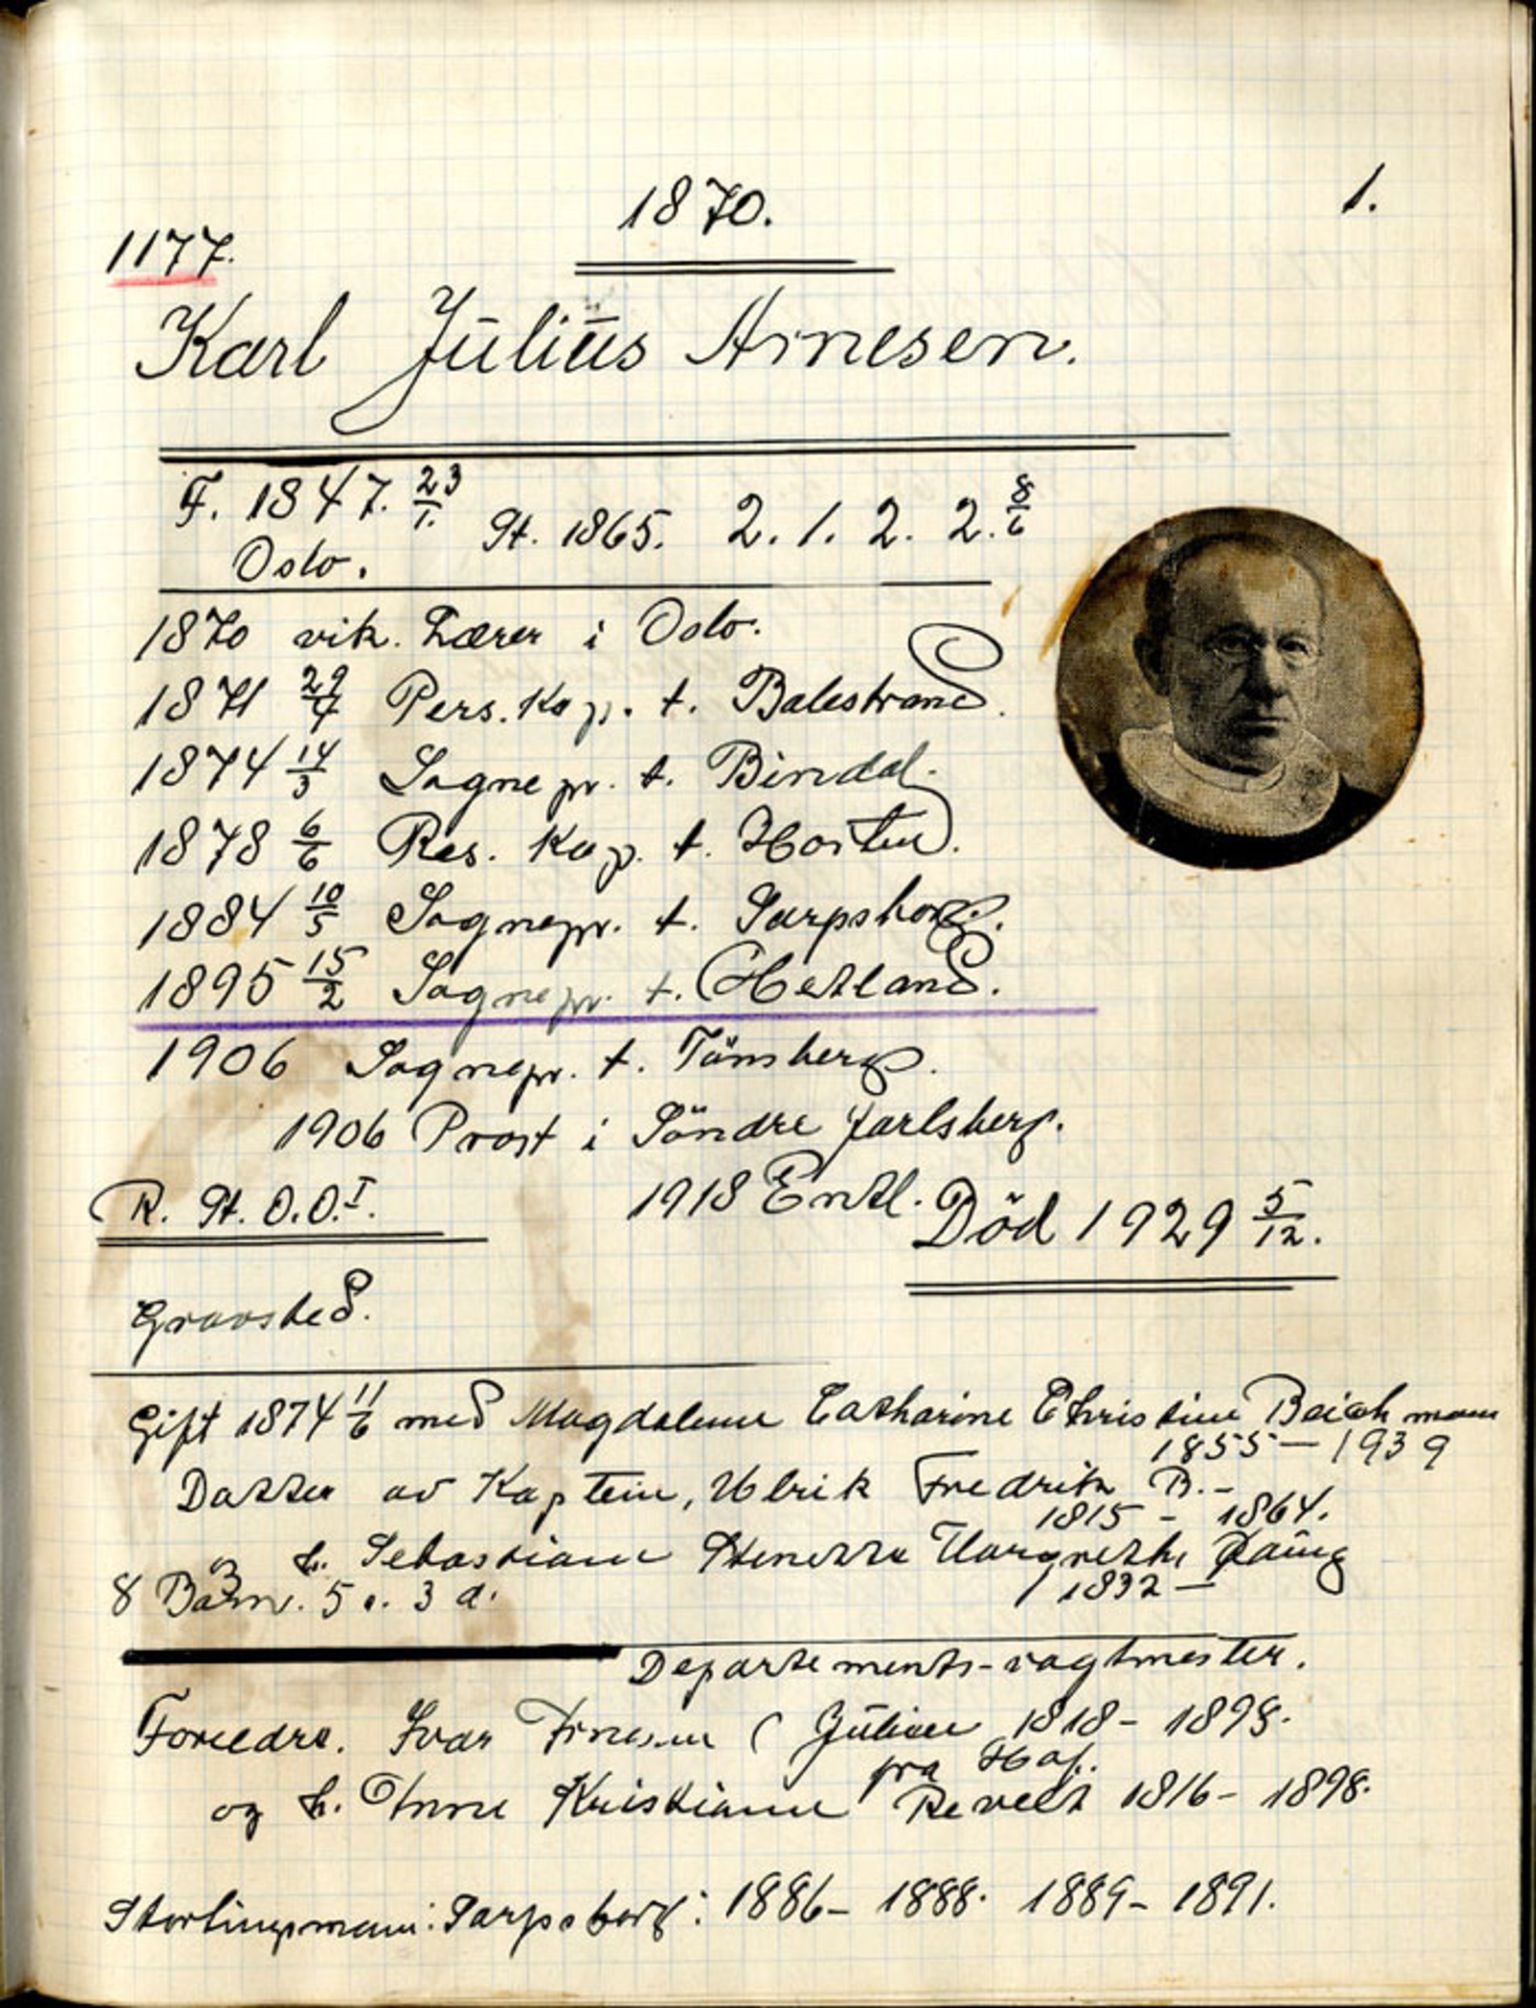 1870. 1.
1177.
Karl Julius Arnesen.
F. 1847. 23/1. St. 1865. 2. 1. 2. 2. 8/6
Oslo.
1870 vik. Lærer i Oslo.
1871 29/4 Pers. Kap. t. Balestrand.
1874 14/3 Sognepr. t. Bindal.
1878 6/6 Res. Kap. t. Horten.
1884 10/5 Sognepr. t. Sarpsborg.
1895 15/2 Sognepr. t. Hetland.
1906 Sognepr. t. Tönsberg.
1906 Prost i Söndre Jarlsberg.
R. St. O.O. I. 1918 Entl. Död 1929 5/12.
Gravsted.
Gift 1874 11/6 med Magdalene Catharine Christine Beichmann
1855 - 1939
Datter av Kaptein, Ulrik Fredrik B. -
1815 - 1864.
h. Sebastiane Margrethe
1832 -
8 Barn. 5 s. 3 d.
Departements-vagtmester.
Foreldre. Ivar Arnesen ( 1818 - 1898.
fra Haf.
og h. Anne Kristiane Reveel 1816 - 1898.
Stortingsmann: Sarpsborg: 1886 - 1888. 1889 - 1891.